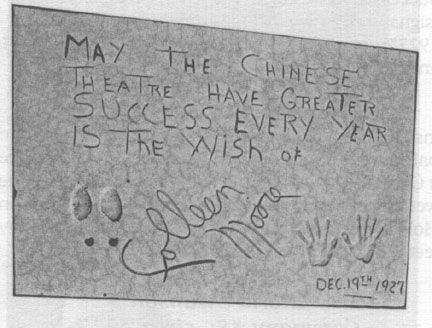 MAY THE CHINESE
THEATRE HAVE GREATER
SUCCESS EVERY YEAR
IS THE WISH OF
Colleen
Moore
DEC. 19TH 1927